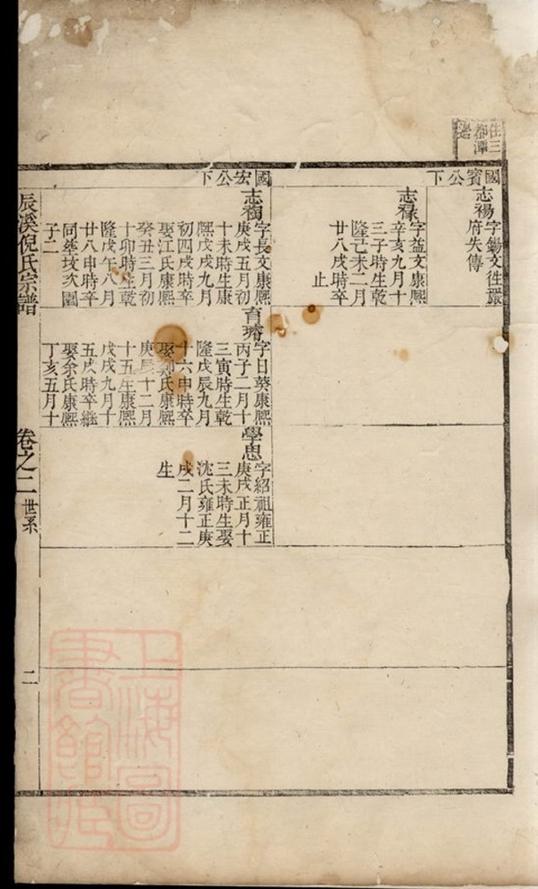 住三
都潭
國賓公下
志禓
字錫文徃
府失傳
志祿
字益文康熙
辛亥九月十
三子時生乾
隆己未二月
廿八戌時卒
止
國宏公下
志禂
字長文康熙
庚戌五月初
十未時生康
熙戊戌九月
初四戌時卒
娶江氏康熙
癸丑三月初
十卯時生乾
隆戊午八月
廿八申時卒
同塟坟次園
子二
育璿
字日葵康熙
丙子二月十
三寅時生乾
隆戊辰九月
十六申時卒
娶鄭氏康熙
庚辰十二月
十五生康熙
戊戌九月十
五戌時卒繼
娶余氏康熙
丁亥五月十
學思
字紹祖雍正
庚戌正月十
三未時生娶
沈氏雍正庚
戌二月十二
生
辰溪倪氏宗譜
卷之二
世系
二
上海圖
書館藏